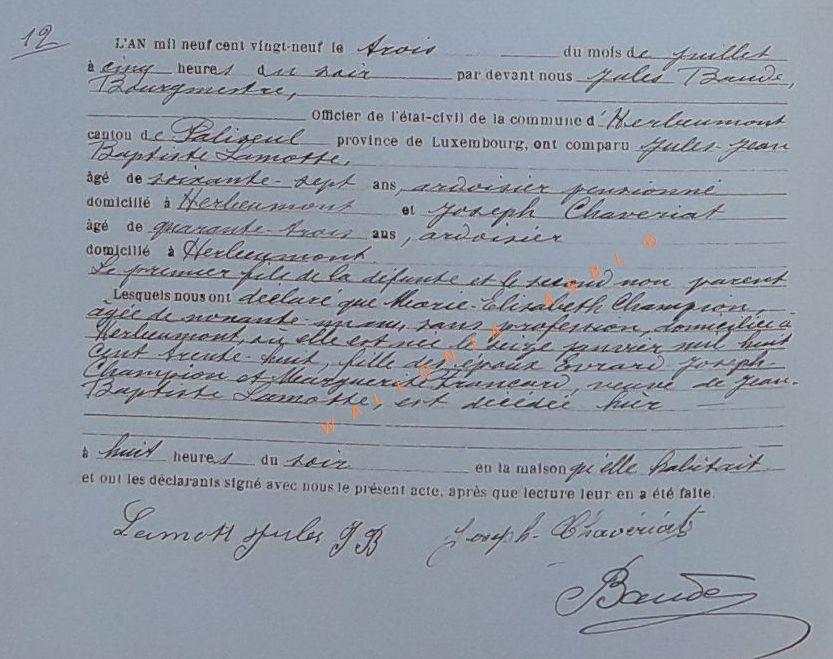 12
L'AN mil neuf cent vingt-neuf le trois du mois de juillet
à cinq heures du soir par devant nous Jules Baude,
Bourgmestre,
Officier de l'état-civil de la commune d'Herbeumont
canton de Paliseul province de Luxembourg, ont comparu Jules-Jean
Baptiste Lamotte,
âgé de soixante-sept ans, ardoisier pensionné
domicilié à Herbeumont et Joseph Chaveriat
âgé de quarante-trois ans, ardoisier
domicilié à Herbeumont
Le premier fils de la défunte et le second non parent
Lesquels nous ont déclaré que Marie-Elisabeth Champion,
âgée de nonante-un ans, sans profession, domiciliée à
Herbeumont, où elle est née le seize janvier mil huit
cent trente-huit, fille des époux Evrard Joseph
Champion et Marguerite Francard, veuve de Jean-
Baptiste Lamotte, est décédée hier
à huit heures du soir en la maison qu'elle habitait
et ont les déclarants signé avec nous le présent acte, après que lecture leur en a été faite.
Lamott jules JB Joseph-Chavériat
Baude
WALLONIA ASBL ®